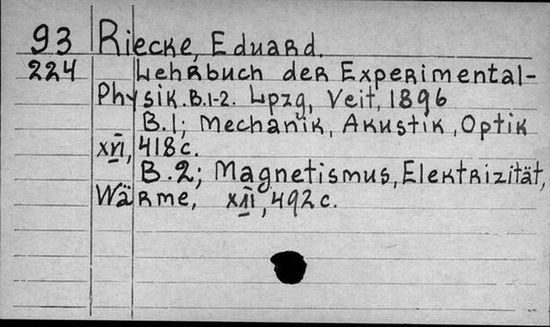 93 Riecke, Eduard.
224 Lehrbuch der Experimental-
Physik. B.1-2. Lpzg, Veit, 1896
B.1; Mechanik, Akustik, Optik
XVI, 418 c.
B.2; Magnetismus, Elektrizität,
Wärme, XII, 492 c.